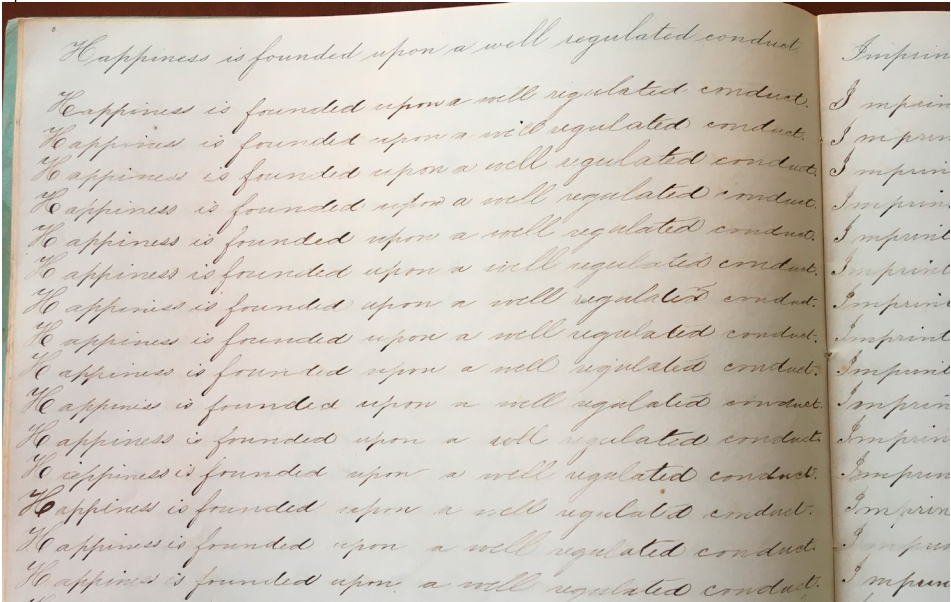 Happiness is founded upon a well regulated conduct
Happiness is founded upon a well regulated conduct.
Happiness is founded upon a well regulated conduct.
Happiness is founded upon a well regulated conduct.
Happiness is founded upon a well regulated conduct.
Happiness is founded upon a well regulated conduct.
Happiness is founded upon a well regulated conduct.
Happiness is founded upon a well regulated conduct.
Happiness is founded upon a well regulated conduct.
Happiness is founded upon a well regulated conduct.
Happiness is founded upon a well regulated conduct.
Happiness is founded upon a well regulated conduct.
Happiness is founded upon a well regulated conduct.
Happiness is founded upon a well regulated conduct.
Happiness is founded upon a well regulated conduct.
Happiness is founded upon a well regulated conduct.